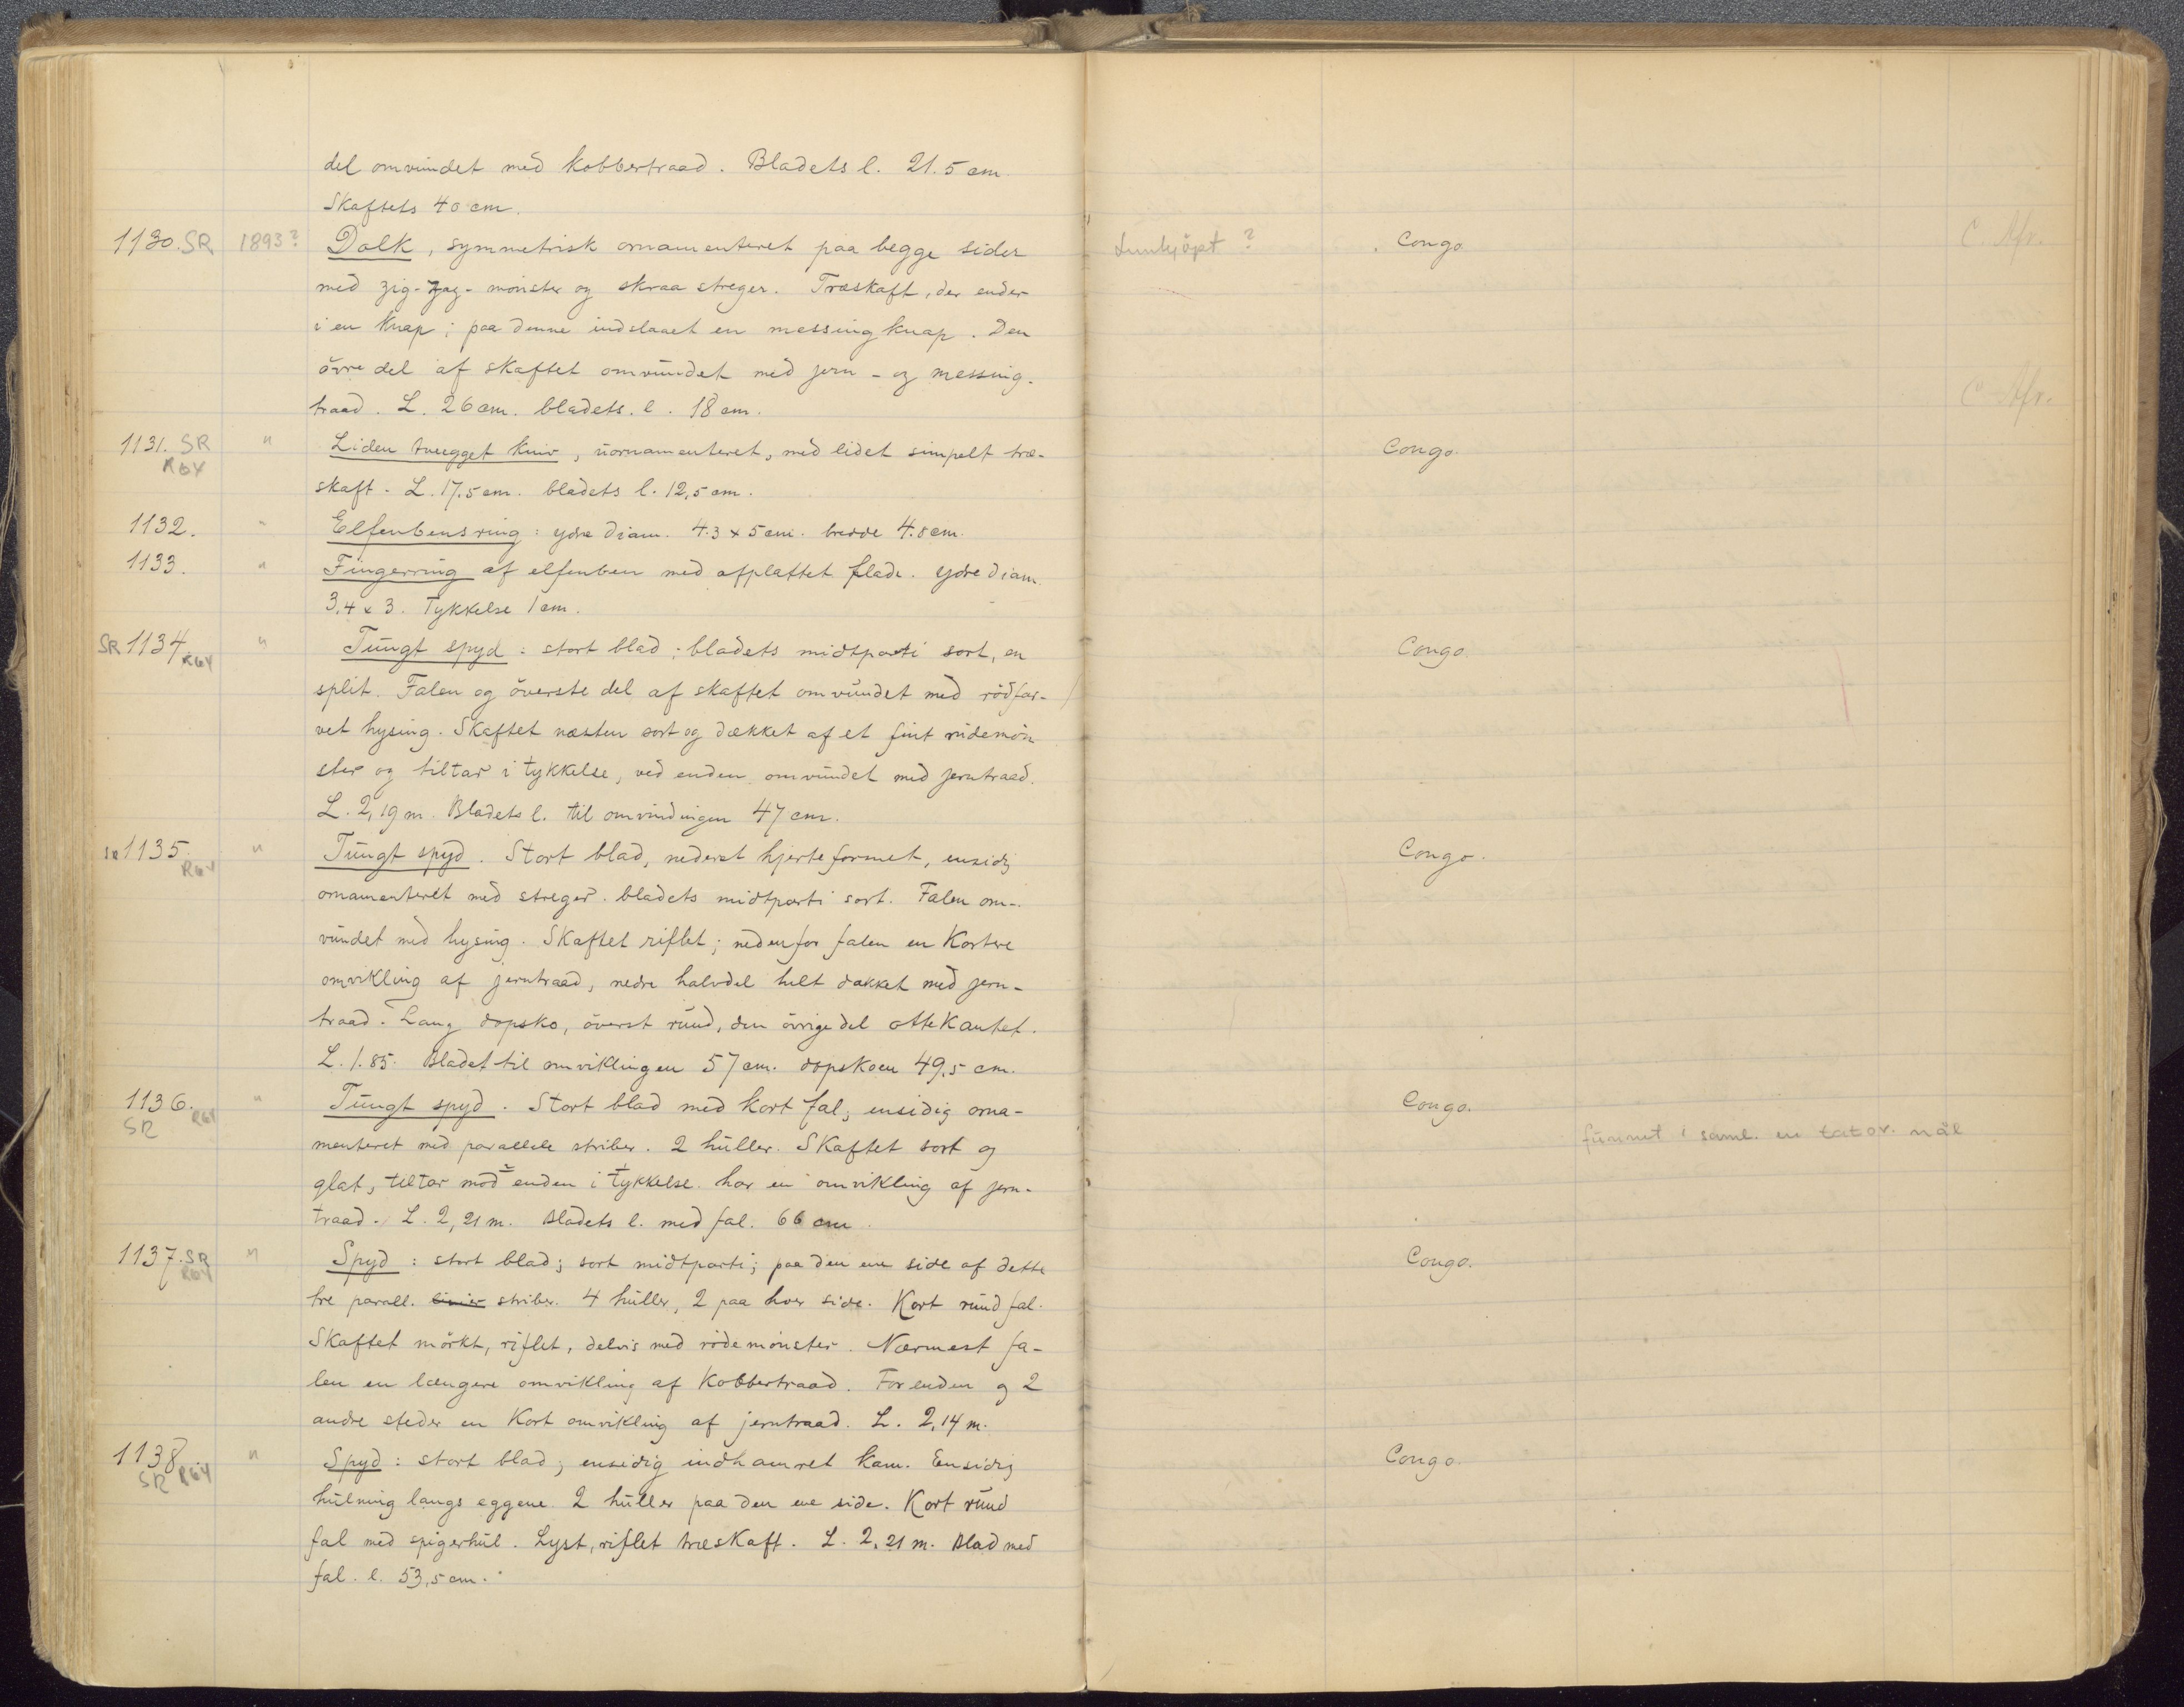 del omvundet med kobbertraad. Bladets l. 21.5 cm.
Skaftets 40 cm.
1130. SR 1893? Dolk, symmetrisk ornamenteret paa begge sider ? Congo C. Afr.
med zig-zag-mönster og skraa streger. Træskaft, der ender
i en knap; paa denne indslaaet en messingknap. Den
övre del af skaftet omvundet med jern- og messing-
traad. L. 26 cm. bladets. l. 18 cm. C. Afr.
1131. SR " Liden tveegget kniv, uornamenteret, med lidet simpelt træ- Congo.
R64
skaft. L. 17,5 cm. bladets l. 12,5 cm.
1132. " Elfenbensring: ydre diam. 4.3 x 5 cm. bredde 4.8 cm.
1133. " Fingerring af elfenben med afplattet flade. ydre diam.
3,4 x 3. Tykkelse 1 cm.
SR 1134. R64 " Tungt spyd: stort blad; bladets midtparti sort, en Congo.
split. Falen og överste del af skaftet omvundet med rödfar-
vet hysing. Skaftet næsten sort og dækket af et fint rudemön
ster og tiltar i tykkelse, ved enden omvundet med jerntraad.
L. 2,19 m. Bladets l. til omvindingen 47 cm.
SR 1135. R64 " Tungt spyd. Stort blad, nederst hjerteformet, ensidig Congo.
ornamenteret med streger. bladets midtparti sort. Falen om-
vundet med hysing. Skaftet riflet; nedenfor falen en kortere
omvikling af jerntraad, nedre halvdel helt dækket med jern-
traad. Lang dopsko, överst rund, den övrige del ottekantet.
L. 1.85. Bladet til omviklingen 57 cm. dopskoen 49,5 cm.
1136. SR R64 " Tungt spyd. Stort blad med kort fal, ensidig orna- Congo.
funnet i saml. en tatov. nål
menteret med parallele striber. 2 huller. Skaftet sort og
glat, tiltar mod enden i tykkelse. har en omvikling af jern-
traad. L. 2,21 m. Bladets l. med fal. 66 cm.
1137. SR R64 " Spyd: stort blad; sort midtparti; paa den ene side af dette Congo.
tre parall. linier striber. 4 huller, 2 paa hver side. Kort rund fal.
Skaftet mörkt, riflet, delvis med rudemönster. Nærmest fa-
len en længere omvikling af kobbertraad. For enden og 2
andre steder en kort omvikling af jerntraad. L. 2,14 m.
1138. SR R64 " Spyd: stort blad, ensidig indhamret kam. Ensidig Congo.
hulning langs eggene. 2 huller paa den ene side. Kort rund
fal med spigerhul. Lyst, riflet træskaft. L. 2,21 m. Blad med
fal. l. 53,5 cm.